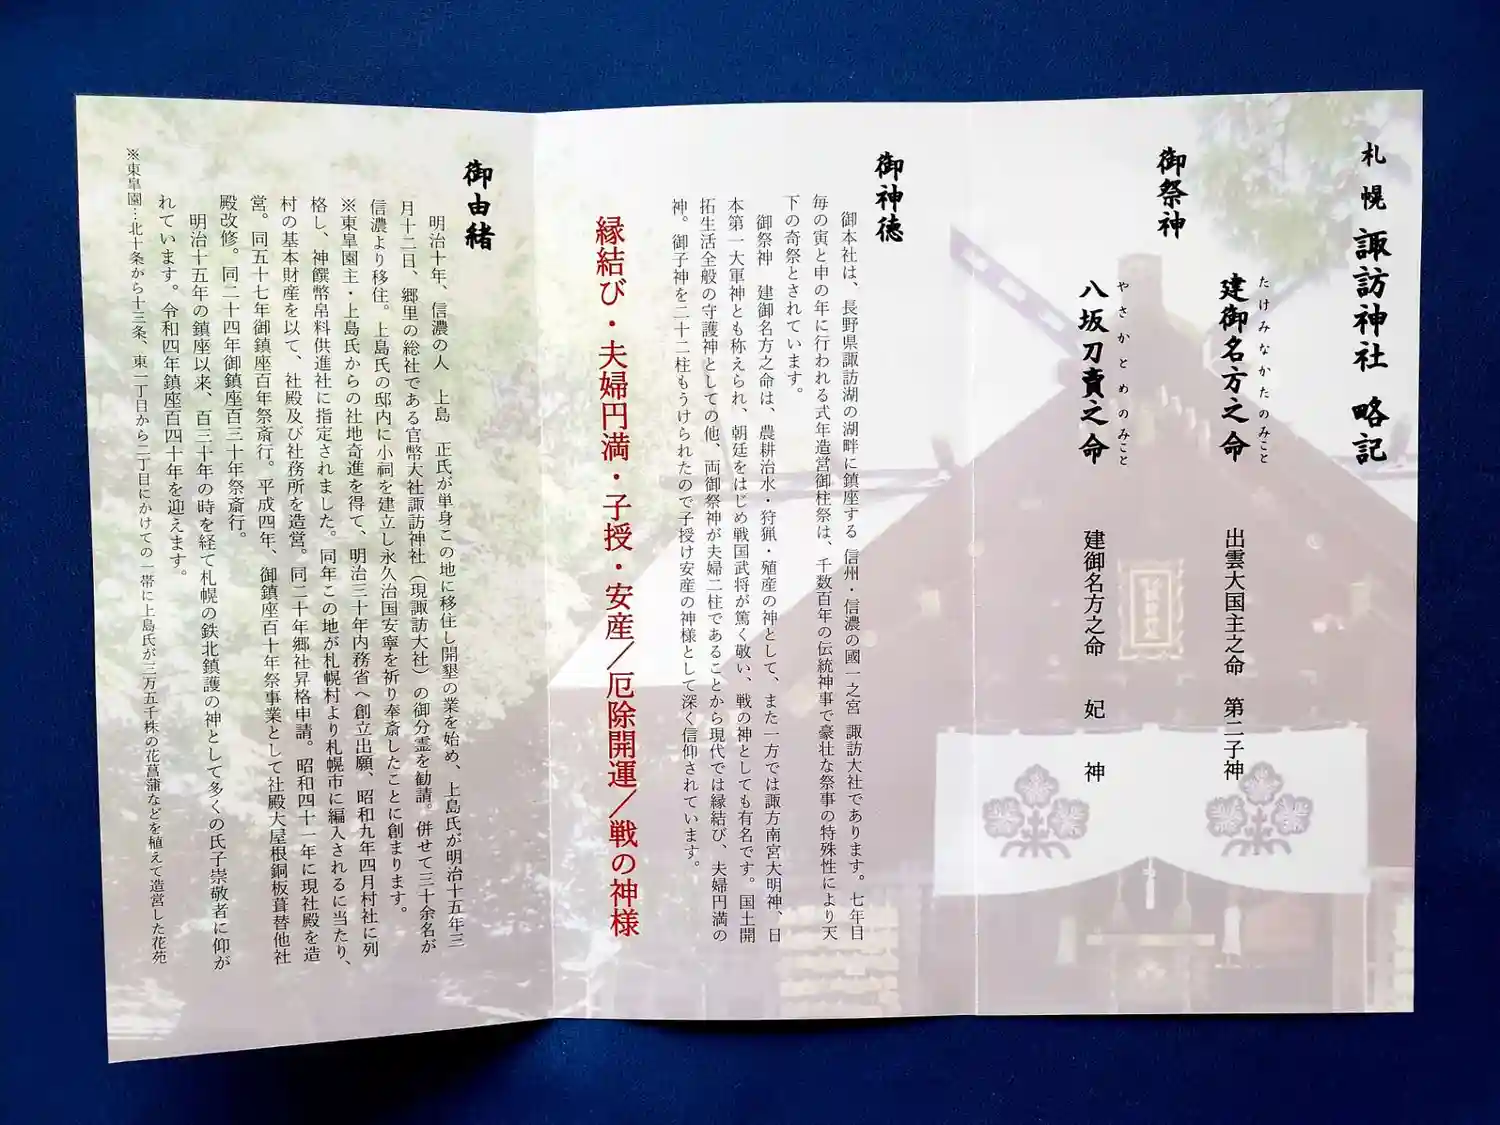 札幌 諏訪神社 略記
御祭神
たけみなかたのみこと
建御名方之命 出雲大国主之命 第二子神
やさかとめのみこと
八坂刀賣之命 建御名方之命 妃神
御神徳
御本社は、長野県諏訪湖の湖畔に鎮座する 信州・信濃の國一之宮 諏訪大社であります。七年目
毎の寅と申の年に行われる式年造営御柱祭は、千数百年の伝統神事で豪壮な祭事の特殊性により天
下の奇祭とされています。
御祭神 建御名方之命は、農耕治水・狩猟・殖産の神として、また一方では諏方南宮大明神、日
本第一大軍神とも称えられ、朝廷をはじめ戦国武将が篤く敬い、戦の神としても有名です。国土開
拓生活全般の守護神としての他、両御祭神が夫婦二柱であることから現代では縁結び、夫婦円満の
神。御子神を二十二柱もうけられたので子授け安産の神様として深く信仰されています。
縁結び・夫婦円満・子授・安産／厄除開運／戦の神様
御由緒
明治十年、信濃の人 上島 正氏が単身この地に移住し開墾の業を始め、上島氏が明治十五年三
月十二日、郷里の総社である官幣大社諏訪神社（現諏訪大社）の御分霊を勧請。併せて三十余名が
信濃より移住。上島氏の邸内に小祠を建立し永久治国安寧を祈り奉斎したことに創まります。
※東皐園主・上島氏からの社地奇進を得て、明治三十年内務省へ創立出願、昭和九年四月村社に列
格し、神饌幣帛料供進社に指定されました。同年この地が札幌村より札幌市に編入されるに当たり、
村の基本財産を以て、社殿及び社務所を造営。同二十年郷社昇格申請。昭和四十一年に現社殿を造
営。同五十七年御鎮座百年祭斎行。平成四年、御鎮座百十年祭事業として社殿大屋根銅板葺替他社
殿改修。同二十四年御鎮座百三十年祭斎行。
明治十五年の鎮座以来、百三十年の時を経て札幌の鉄北鎮護の神として多くの氏子崇敬者に仰が
れています。令和四年鎮座百四十年を迎えます。
※東皐園…北十条から十三条、東一丁目から二丁目にかけての一帯に上島氏が三万五千株の花菖蒲などを植えて造営した花苑